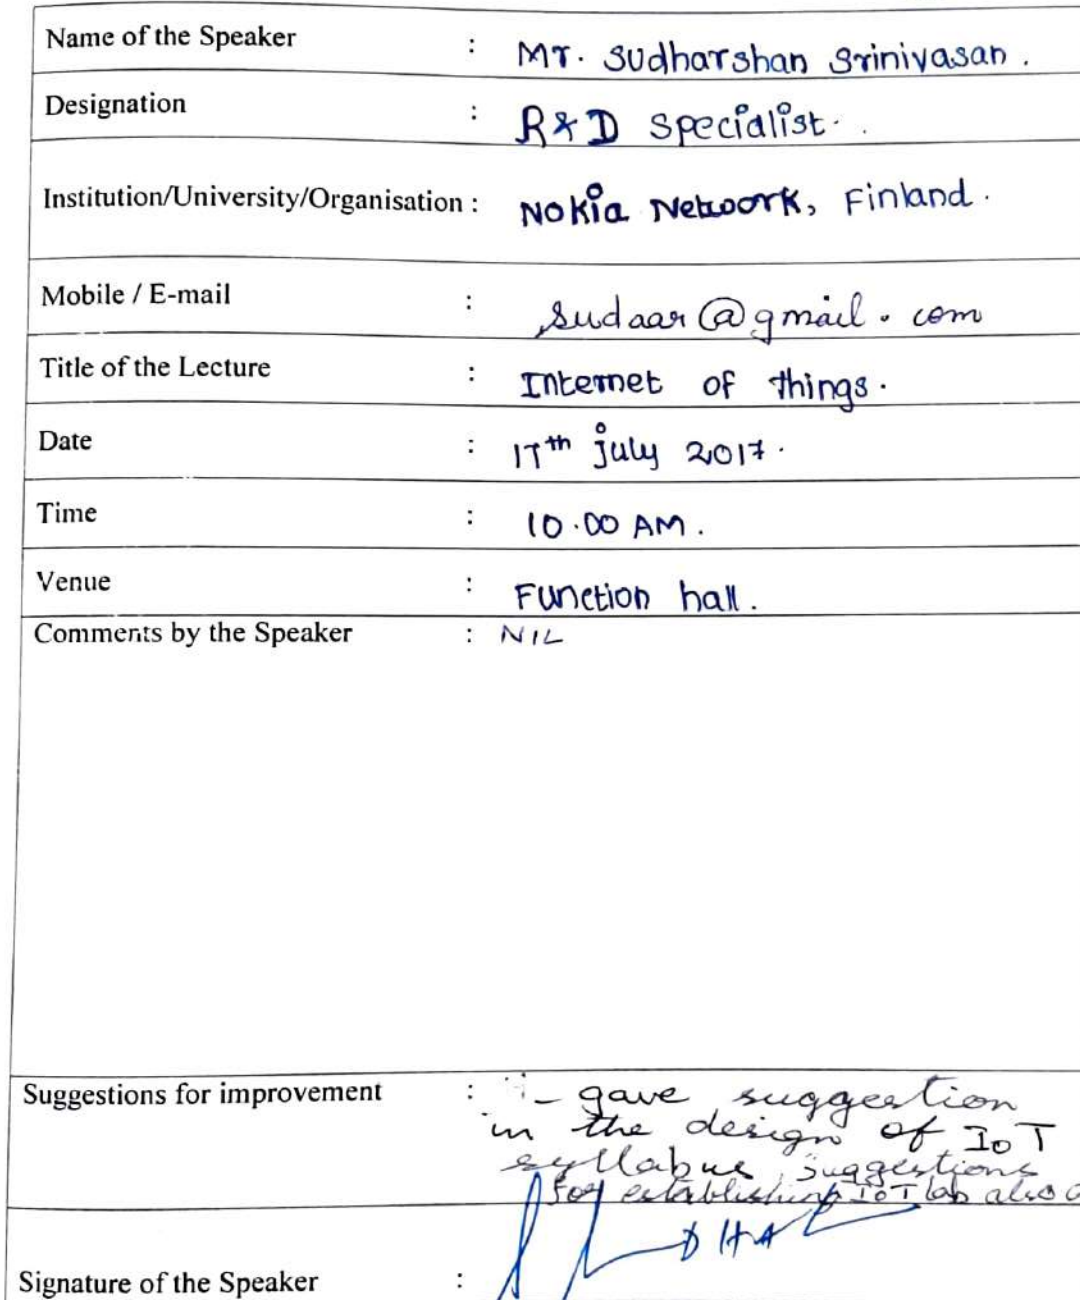 Name of the Speaker : Mr. Sudharshan Srinivasan.
Designation : R&D Specialist.
Institution/University/Organisation : Nokia Network, Finland.
Mobile / E-mail : sudaar@gmail.com
Title of the Lecture : Internet of things.
Date : 17th july 2017.
Time : 10.00 AM.
Venue : Function hall.
Comments by the Speaker : NIL
Suggestions for improvement : - gave suggestion
in the design of IoT
syllabus, suggestions
for establishing IoT lab also
Signature of the Speaker :